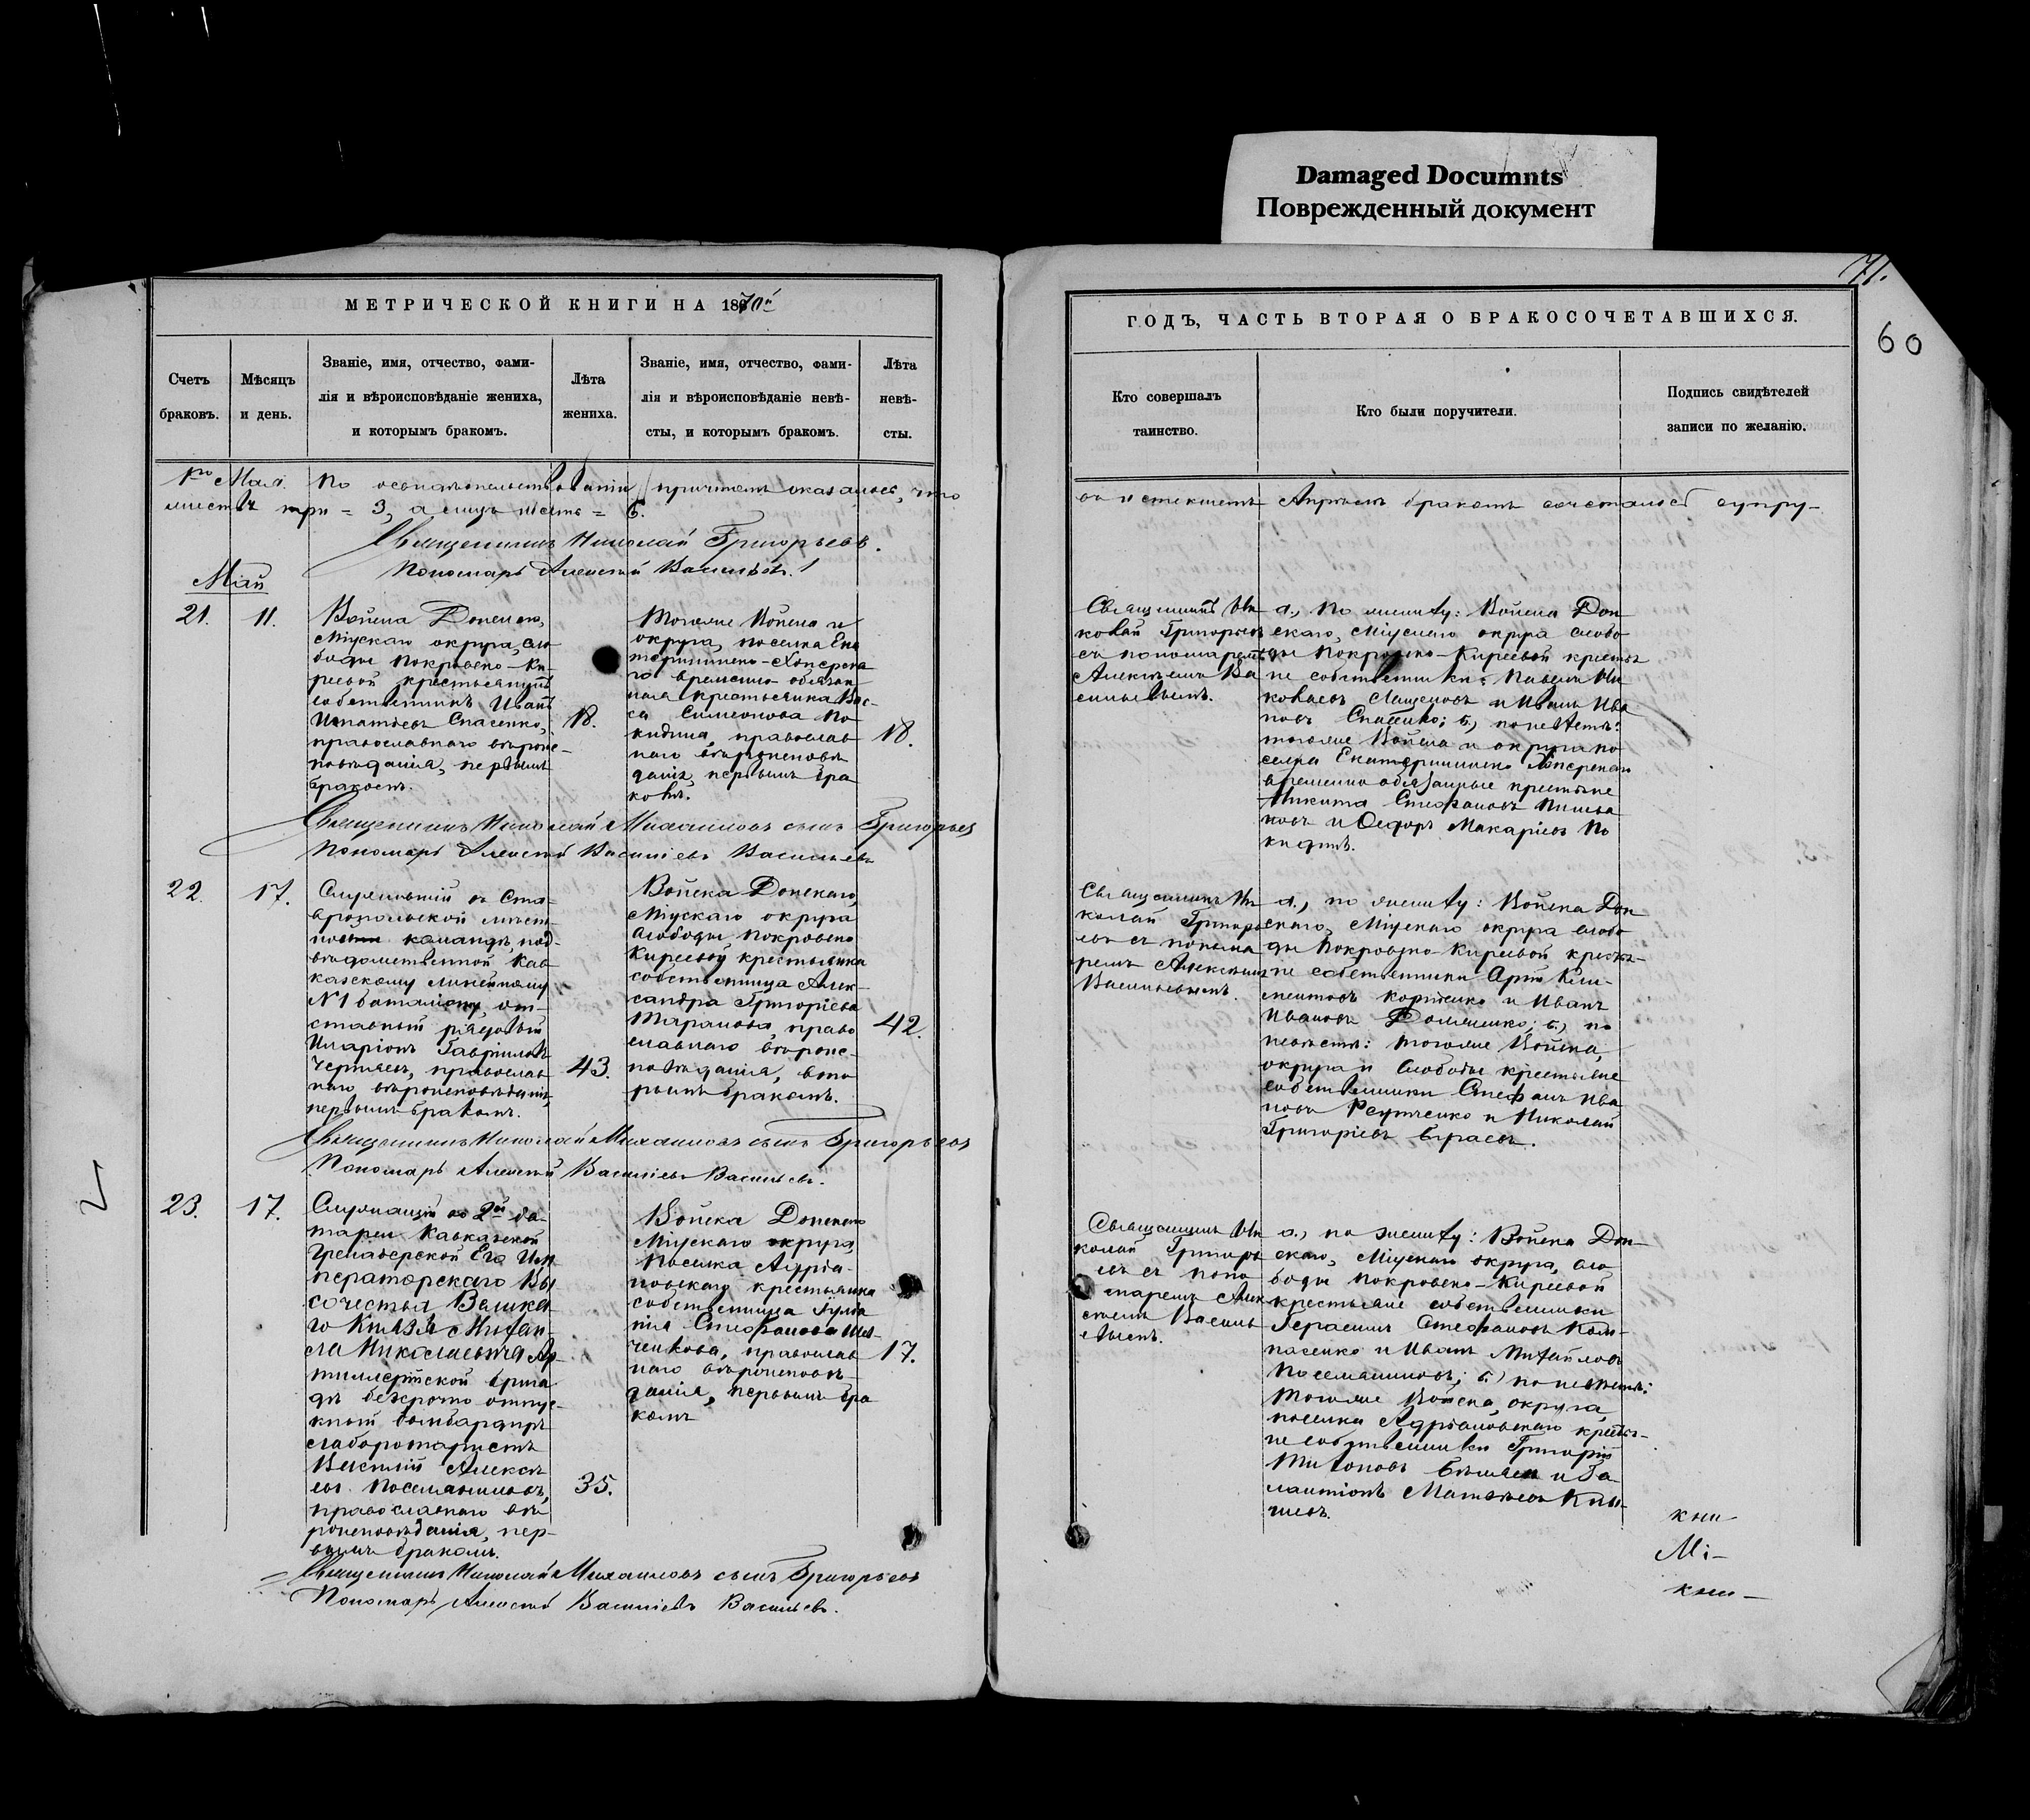 Damaged Documnts
Поврежденный документ
71.
60
МЕТРИЧЕСКОЙ КНИГИ НА 1870й
Счетъ браковъ.
Мѣсяцъ и день.
Званіе, имя, отчество, фами-
лія и вѣроисповѣданіе жениха,
и которымъ бракомъ.
Лѣта жениха.
Званіе, имя, отчество, фами-
лія и вѣроисповѣданіе невѣ-
сты, и которымъ бракомъ.
Лѣта невѣ-
сты.
1го Мая. По освидѣтельствованіи причтомъ оказалось, что
три = 3, а лицъ шесть = 6.
Священникъ Николай Григорьевъ.
Пономарь Алексѣй Васильевъ.
Май
21.
11.
Войска Донскаго,
Міускаго округа, сло
боды Покровско-Ки
реевой крестьянинъ
собственникъ Иванъ
Игнатьевъ Спасенко,
православнаго вѣроис-
повѣданія, первымъ
бракомъ.
18.
Тогоже Войска и
округа, поселка Ека
терининско-Хопсрска
го временно-обязан
ная крестьянка Вас-
са Симеонова По
кидина, православ
наго вѣроисповѣ
данія, первымъ бра
комъ.
18.
Священникъ Николай Михаиловъ сынъ Григорьевъ
Пономарь Алексѣй Василіевъ Васильевъ
22.
17.
Служившій въ Ста-
вропольской мѣст-
ной командѣ, под-
вѣдомственной Кав
казскому линейному
№1 баталіону, от-
ставный рядовый
Иларіонъ Гавріиловъ
Черняевъ, православ
наго вѣроисповѣданія,
первымъ бракомъ.
43.
Войска Донскаго,
Міускаго округа
слободы Покровско
Киреевой крестьянка
собственница Алек-
сандра Григоріева
Таранова, право
славнаго вѣроис-
повѣданія, вто
рымъ бракомъ.
42.
Священникъ Николай Михаиловъ сынъ Григорьевъ
Пономарь Алексѣй Василіевъ Васильевъ.
23.
17.
Служащій во 2й ба-
тареи Кавказской
Гренадерской Его Им-
ператорскаго Вы
сочества Велика
го Князя Михаи-
ла Николаевича Ар-
тиллерійской брига
дѣ безсрочно отпус-
кный бомбардиръ
лаборотаристъ
Василій Алексѣ
евъ
православнаго вѣ
роисповѣданія, пер-
вымъ бракомъ.
35.
Войска Донскаго
Міускаго округа,
Поселка Адріа-
новскаго крестьянка
собственница Іулiа
нія Стефанова Шев-
ченкова, православ
наго вѣроисповѣ-
данія, первымъ бра
комъ
17.
Священникъ Николай Михаиловъ сынъ Григорьевъ
Пономарь Алексѣй Василіевъ Васильевъ.
ГОДЪ, ЧАСТЬ ВТОРАЯ О БРАКОСОЧЕТАВШИХСЯ.
Кто совершалъ таинство.
Кто были поручители.
Подпись свидѣтелей
записи по желанію.
въ истекшемъ Апрѣлѣ бракомъ сочеталось супру-
Священникъ Ни
колай Григорьевъ
съ пономаремъ
Алексѣемъ Ва
сильевымъ.
а., по жениху: Войска Дон
скаго, Міускаго округа слобо
ды Покровско-Киреевой крестья
не собственники: Павелъ Ни
колаевъ и Иванъ Ива
новъ Спасенко; б., по невѣстѣ:
тогоже Войска и округа по
селка Екатерининско Хопсрскаго
временно обязанные крестьяне
Никита Стефановъ
и Ѳедоръ Макаріевъ По
кидинъ.
Священникъ Ни
колай Григорь
евъ съ понома
ремъ Алексѣемъ
Васильевымъ.
а., по жениху: Войска Дон
скаго, Міускаго округа слобо
ды Покровско-Киреевой кресть-
не собственники
и Иванъ
Ивановъ б., по
невѣстѣ: тогоже Войска,
округа и слободы крестьяне
собственники Стефанъ Ива
новъ и Николай
Григоріевъ
Священникъ Ни
колай Григорь
евъ съ поно
маремъ Алек
сѣемъ Василь
евымъ.
а., по жениху: Войска Дон-
скаго, Міускаго округа, сло
боды Покровско-Киреевой
крестьяне собственники
Герасимъ Стефановъ
и Иванъ Михайловъ
б., по невѣстѣ:
тогоже Войска, округа,
поселка Адріановскаго крестья-
не собственники Григорій
и Га
лактіонъ Матвѣевъ
кни-
Мі-
кни-